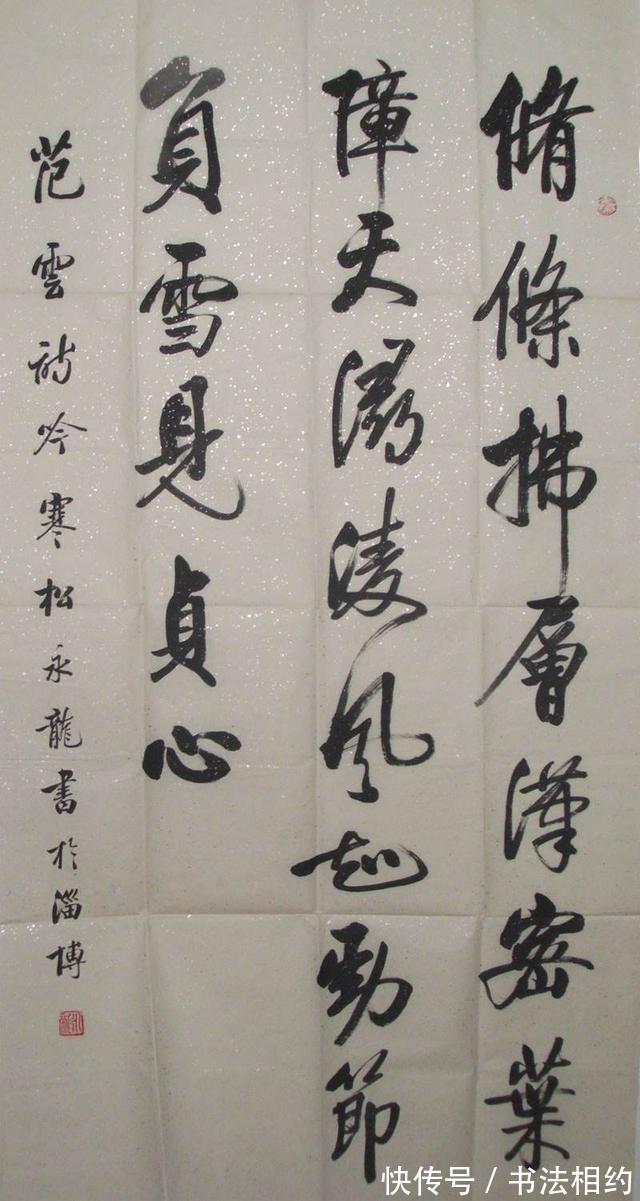 脩條拂層漢密葉
障天潯淩風知勁節
負雪見貞心
范雲詩吟寒松永龍書於淄博
快传号 / 书法相约